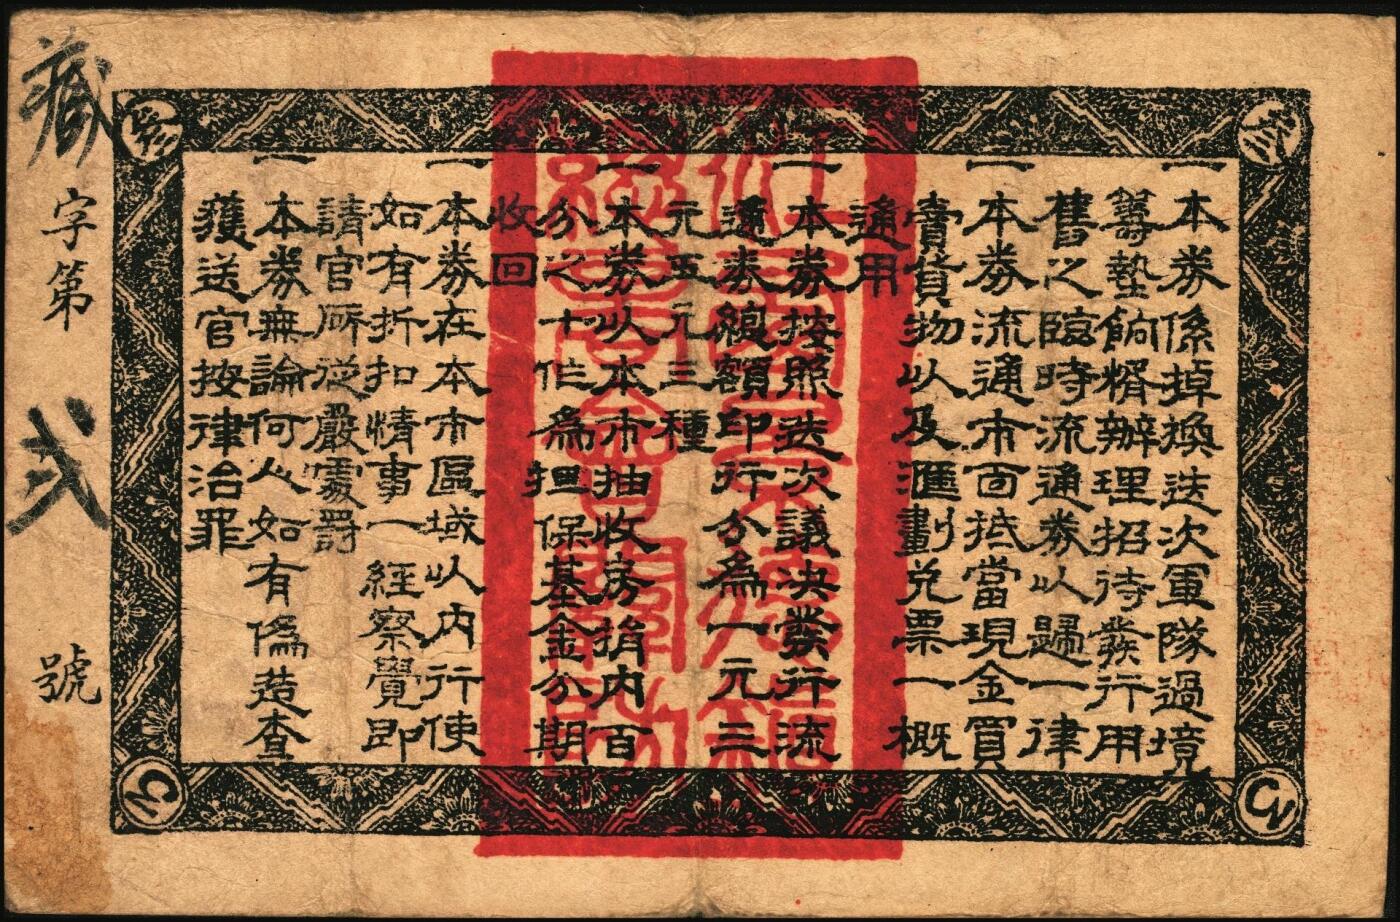 一本券係掉換迭次軍隊過境
籌墊餉糈辦理招待發行用
舊之臨時流通券以歸一律
一本券流通市面抵當現金買
賣貨物以及滙劃兌票一概
通用
一本券按照迭次議決發行流
通券總額印行分為一元三
元五元三種
一本券以本市抽收房捐內百
分之十作為担保基金分期
收回
一本券在本市區域以內行使
如有折扣情事一經察覺即
請官厛從嚴處罰
一本券無論何人如有偽造查
獲送官按律治罪
藏字第 弍 號
叁
叁
3
3